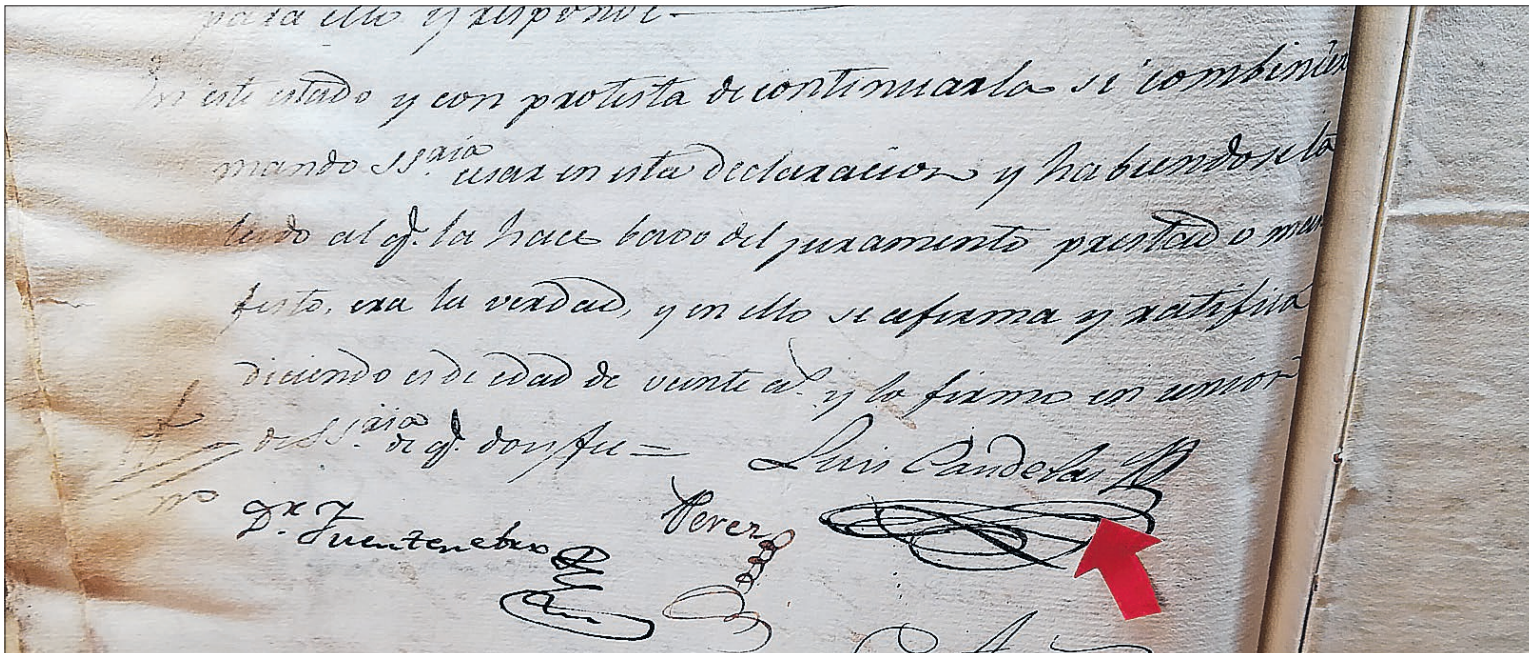 para ello y responde
En este estado y con protesta de continuarla si combiniera
mando SSª.ria cesar en esta declaracion y habiendosela
leido al q.e la hace bajo del juramento prestado mani
festo, era la verdad, y en ello se afirma y ratifica
diciendo es de edad de veinte a.s y lo firmo en union
de SSª.ria de q.e doy fee =
Luis Candelas
Dr. Fuentenebro
Perez